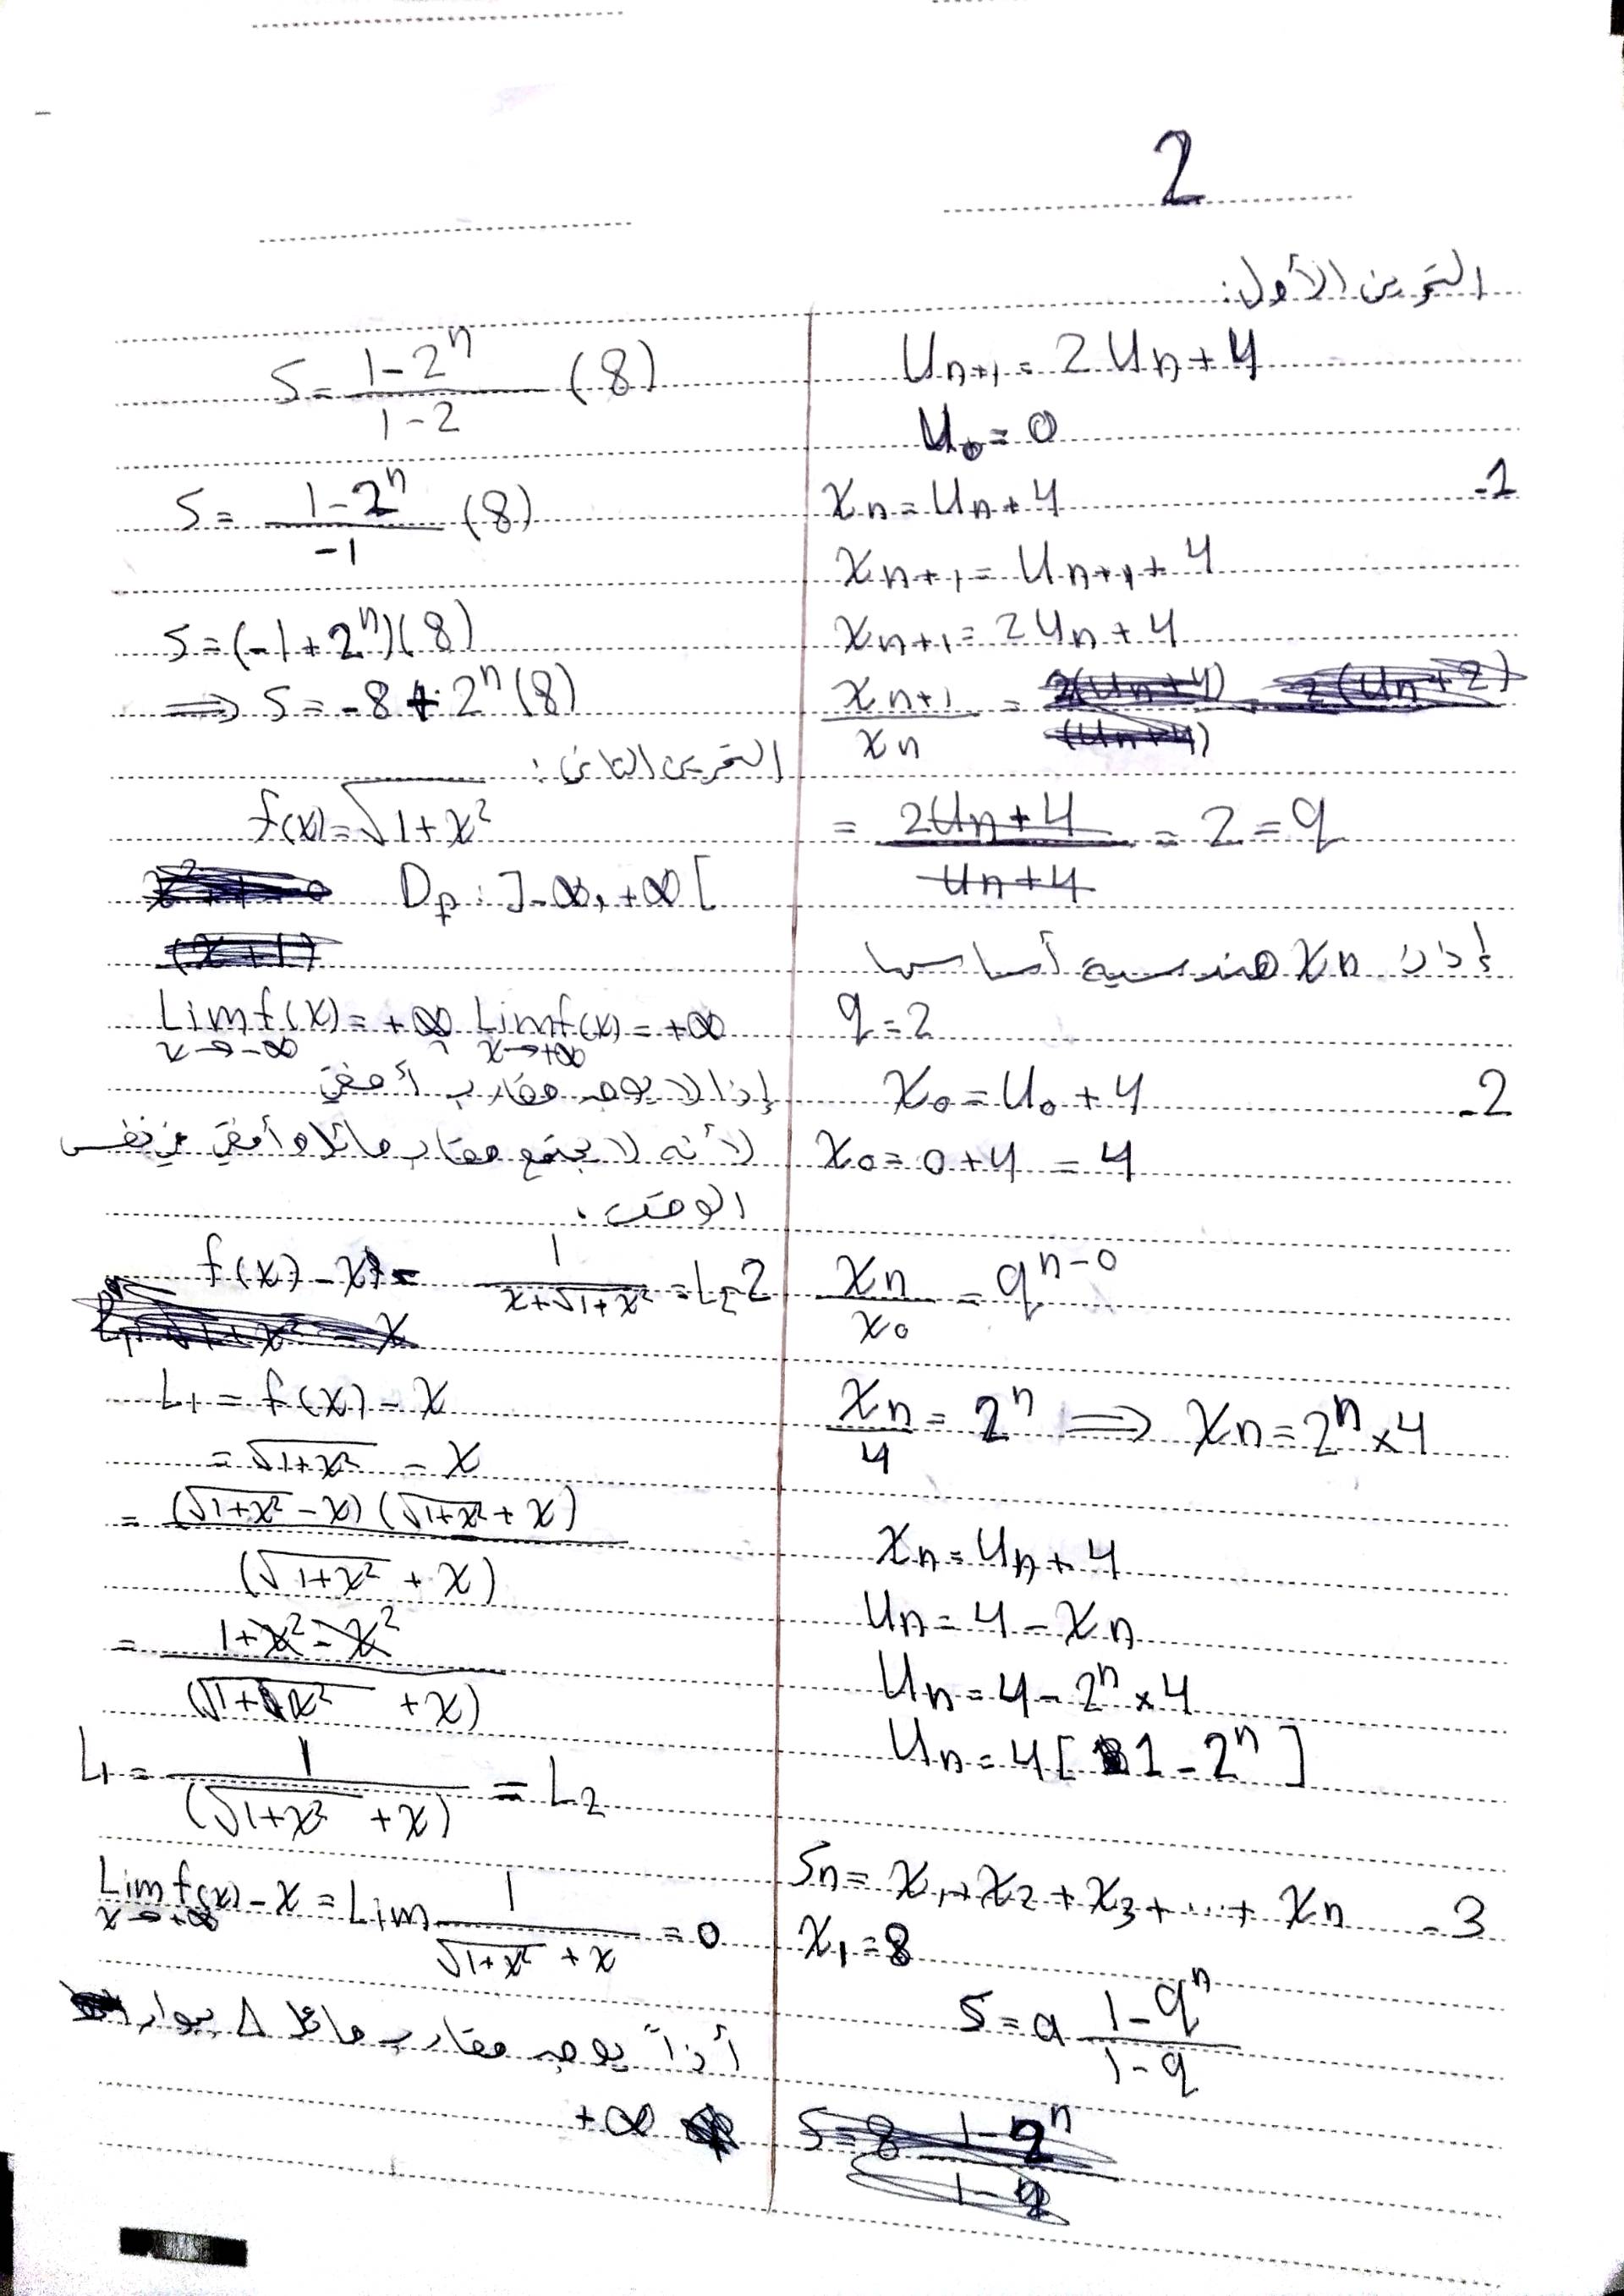 2
التمرين الأول:
U_{n+1} = 2U_n + 4
U_0 = 0
1- x_n = U_n + 4
x_{n+1} = U_{n+1} + 4
x_{n+1} = 2U_n + 4
x_{n+1}/x_n =
= (2U_n + 4)/(U_n + 4) = 2 = q
إذن x_n هندسية أساسها
q = 2
2- x_0 = U_0 + 4
x_0 = 0 + 4 = 4
x_n/x_0 = q^{n-0}
x_n/4 = 2^n ⟹ x_n = 2^n × 4
x_n = U_n + 4
U_n = 4 - x_n
U_n = 4 - 2^n × 4
U_n = 4[1 - 2^n]
3- S_n = x_1 + x_2 + x_3 + ... + x_n
x_1 = 8
S = a (1 - q^n)/(1 - q)
S = (1 - 2^n)/(1 - 2) (8)
S = (1 - 2^n)/(-1) (8)
S = (-1 + 2^n)(8)
⟹ S = -8 + 2^n(8)
التمرين الثاني:
f(x) = √(1+x²)
D_f : ]-∞, +∞[
Lim_{x→-∞} f(x) = +∞, Lim_{x→+∞} f(x) = +∞
إذا لا يوجد مقارب أفقي
لأنه لا يجتمع مقارب مائل وأفقي في نفس
الوقت.
2- f(x) - x = 1/(x+√(1+x²)) = L_2
L_1 = f(x) - x
= √(1+x²) - x
= (√(1+x²) - x)(√(1+x²) + x)/(√(1+x²) + x)
= (1 + x² - x²)/(√(1+x²) + x)
L_1 = 1/(√(1+x²) + x) = L_2
Lim_{x→+∞} f(x) - x = Lim 1/(√(1+x²) + x) = 0
أذاً يوجد مقارب مائل Δ بجوار
+∞